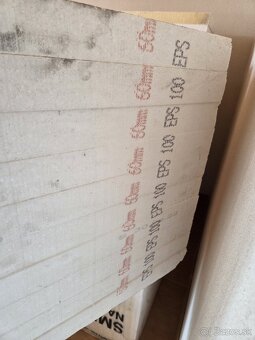 60mm 60mm 60mm 60mm 60mm 60mm 60mm
EPS 100 EPS 100 EPS 100 EPS 100 EPS 100 EPS
SM
NA
bazos.sk